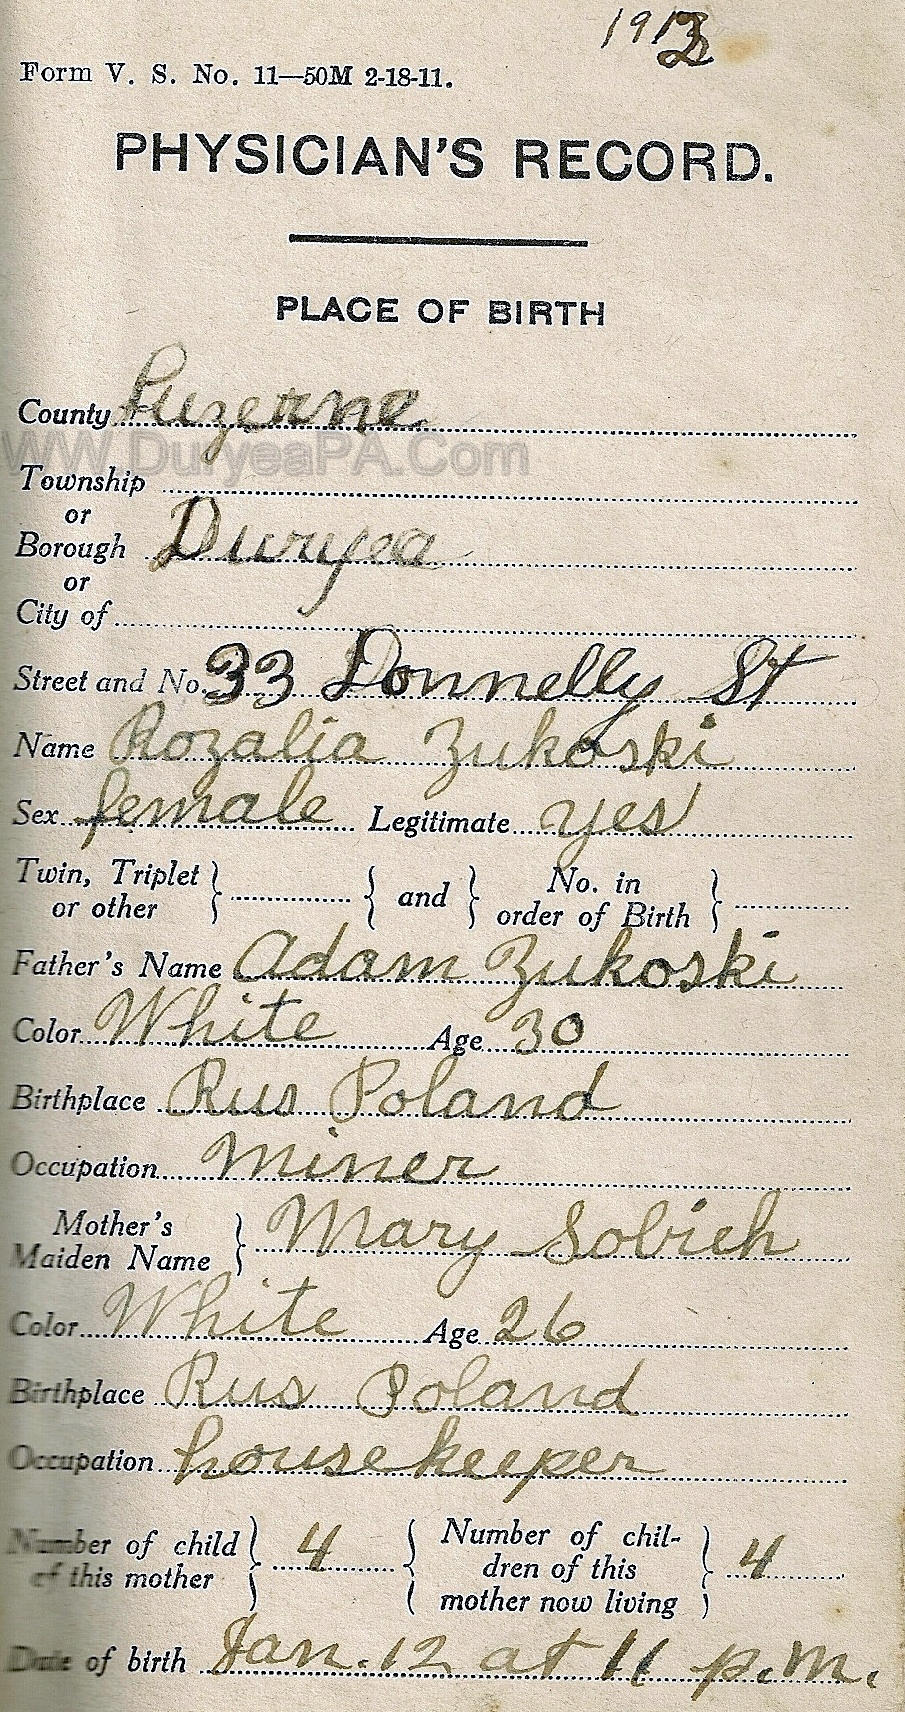 Form V. S. No. 11—50M 2-18-11.
PHYSICIAN'S RECORD.
PLACE OF BIRTH
County Luzerne
WW DuryeaPA.Com
Township
or
Borough Duryea
or
City of
Street and No. 33 Donnelly St
Name Rozalia Zukoski
Sex female Legitimate yes
Twin, Triplet or other } { and } No. in order of Birth }
Father's Name Adam Zukoski
Color White Age 30
Birthplace Rus Poland
Occupation miner
Mother's Maiden Name } Mary Sobieh
Color White Age 26
Birthplace Rus Poland
Occupation housekeeper
Number of child of this mother } 4 { Number of chil- dren of this mother now living } 4
Date of birth Jan. 12 at 11 p.m.